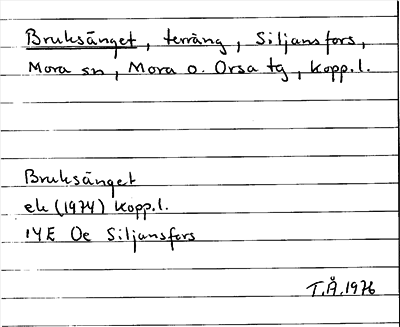 Bruksänget, terräng, Siljansfors,
Mora sn, Mora o. Orsa tg, Kopp.l.
Bruksänget
ek (1974) Kopp.l.
14E Oe Siljansfors
T.Å.1976